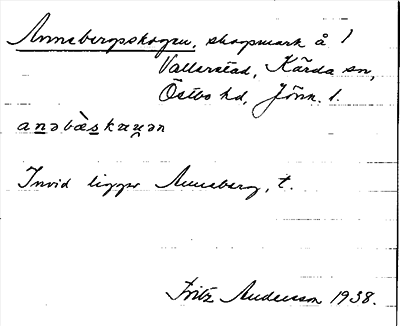 Annebergskogen, skogsmark å 1
Vallerstad, Kärda sn,
Östbo hd, Jönk. l.
anəbæ̀skɷɷ̯ən
Invid ligger Anneberg, t.
Fritz Anderson 1938.